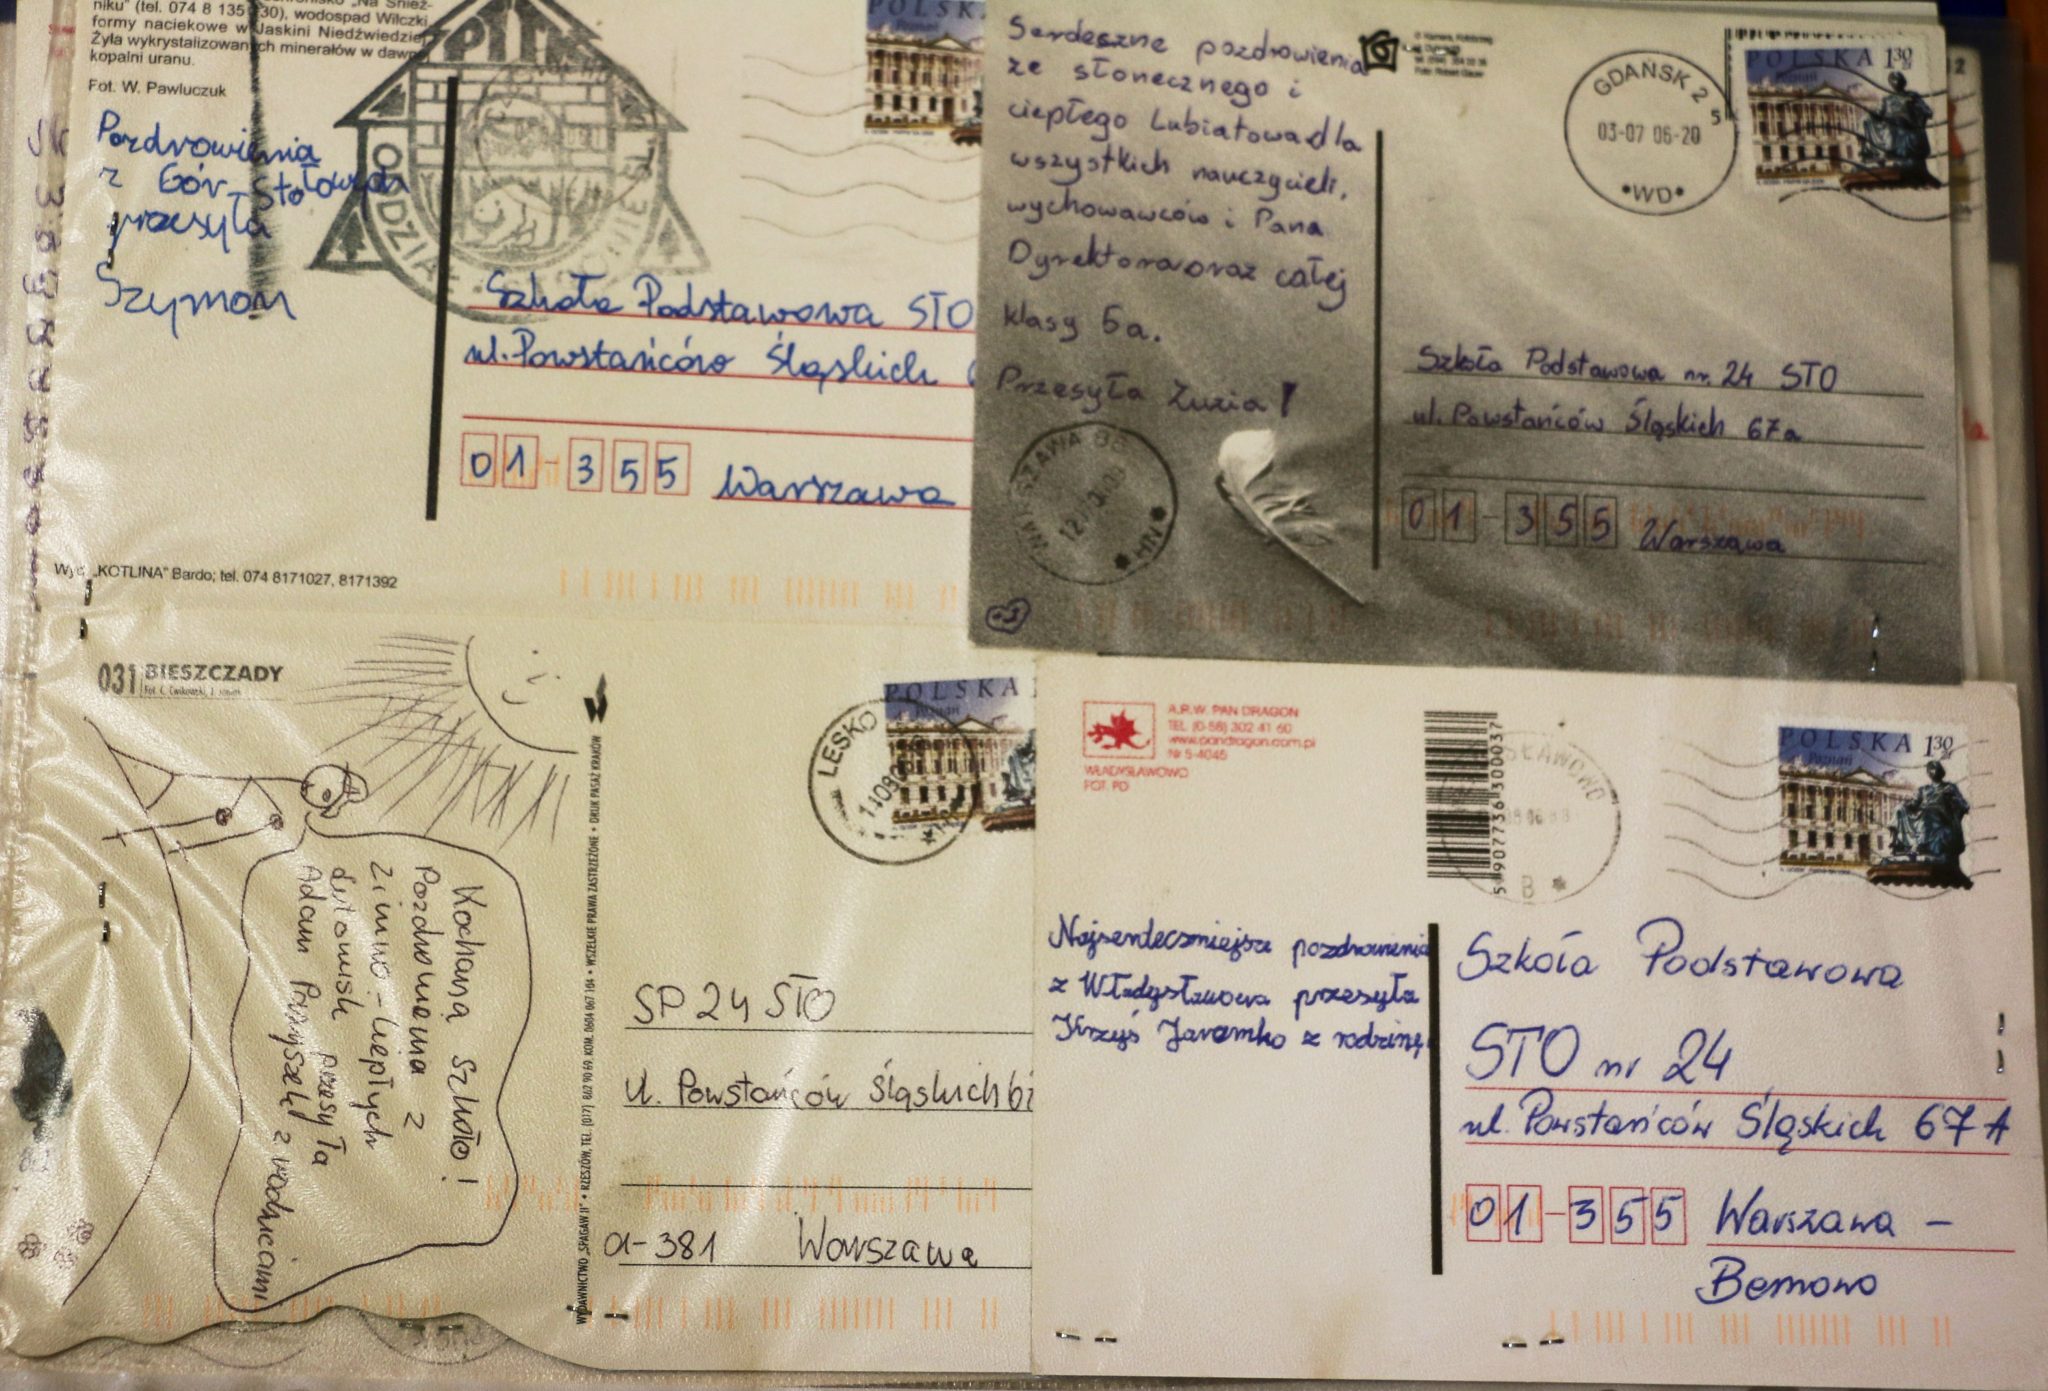 niku" (tel. 074 8 135 30), wodospad Wilczki
formy naciekowe w Jaskini Niedźwiedziej
Żyła wykrystalizowanych minerałów w dawnej
kopalni uranu.
Fot. W. Pawluczuk
Pozdrowienia
z Gór Stołowych
przesyła
Szymon
PTTK
ODDZIAŁ
POLSKA
Poznań
Szkoła Podstawowa STO
ul. Powstańców Śląskich
01-355 Warszawa
Wyd. „KOTLINA" Bardo; tel. 074 8171027, 8171392
Serdeczne pozdrowienia
ze słonecznego i
ciepłego Lubiatowa dla
wszystkich nauczycieli,
wychowawców i Pana
Dyrektora oraz całej
klasy 5a.
Przesyła Zuzia!
WARSZAWA
GDAŃSK 2
5
03-07 06-20
*WD*
POLSKA 1,30
Poznań
Szkoła Podstawowa nr. 24 STO
ul. Powstańców Śląskich 67a
01-355 Warszawa
031 BIESZCZADY
Kochana Szkoło!
Pozdrowienia z
Zimno-ciepłych
Lutowisk przesyła
Adam z rodzicami
WYDAWNICTWO „SPAGAW II" • RZESZÓW, TEL. (017) • WSZELKIE PRAWA ZASTRZEŻONE • DRUK PASAŻ KRAKÓW
LESKO
POLSKA
Poznań
SP 24 STO
ul. Powstańców Śląskich
01-381 Warszawa
A.R.W. PAN DRAGON
TEL. (0-58) 302 41 60
www.pandragon.com.pl
Nr 5-4045
WŁADYSŁAWOWO
FOT. PD
5 907736 300037
B *
POLSKA 1,30
Poznań
Najserdeczniejsze pozdrowienia
z Władysławowa przesyła
Krzyś Jaremko z rodziną
Szkoła Podstawowa
STO nr 24
ul. Powstańców Śląskich 67A
01-355 Warszawa -
Bemowo